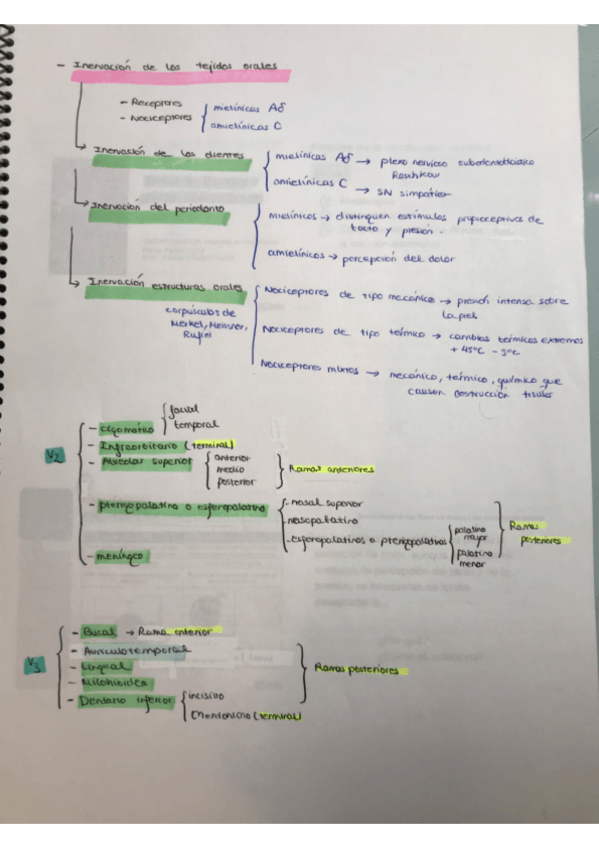 - Inervación de los tejidos orales
- Receptores
- Nociceptores
mielínicas Aδ
amielínicas C
Inervación de los dientes
mielínicas Aδ → plexo nervioso subodontoblástico
Raschkow
amielínicas C → SN simpático
Inervación del periodonto
mielínicos → distinguen estímulos propioceptivos de
tacto y presión.
amielínicos → percepción del dolor
Inervación estructuras orales
corpúsculos de
Merkel, Meissner,
Rufini
Nociceptores de tipo mecánico → presión intensa sobre
la piel
Nociceptores de tipo térmico → cambios térmicos extremos
+ 45ºC - 5ºC
Nociceptores mixtos → mecánico, térmico, químico que
causen destrucción tisular
V2
- cigomático
facial
temporal
- Infraorbitario (terminal)
- Alveolar superior
anterior
medio
posterior
Ramas anteriores
- pterigopalatino o esfenopalatino
- nasal superior
- nasopalatino
- esfenopalatinos o pterigopalatinos
palatino
mayor
palatino
menor
Ramas
posteriores
- meníngeo
V3
- Bucal → Rama anterior
- Auriculotemporal
- Lingual
- Milohioideo
- Dentario inferior
incisivo
mentoniano (terminal)
Ramas posteriores